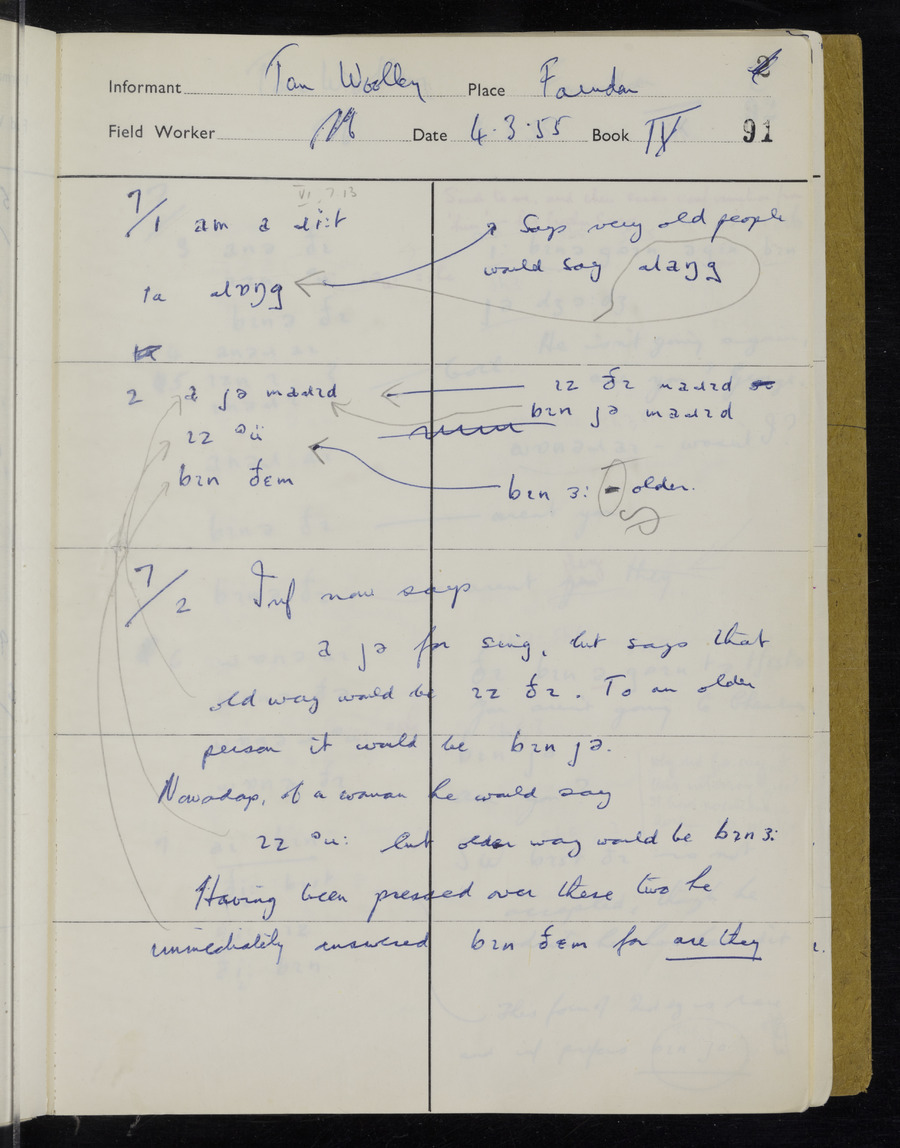 Informant Tom Woolley Place Farndon
Field Worker Date 4.3.55 Book IV 91
VI, 7 13
7/1 am a ɹiːt
↗ Says very old people
would say əlaŋg
1a əlɒŋg
2 a jə maɹɪd
ɪz ðɪ maɹɪd
bɪn jə maɹɪd
ɪz ᵊü
bɪn ðɛm
bɪn ɜː – older.
7/2 Inf now says
a jə for sing, but says that
old way would be ɪz ðɪ. To an older
person it would be bɪn jə.
Nowadays, of a woman he would say
ɪz ᵊuː but older way would be bɪn ɜː
Having been pressed over these two he
immediately answered bɪn ðɛm for are they